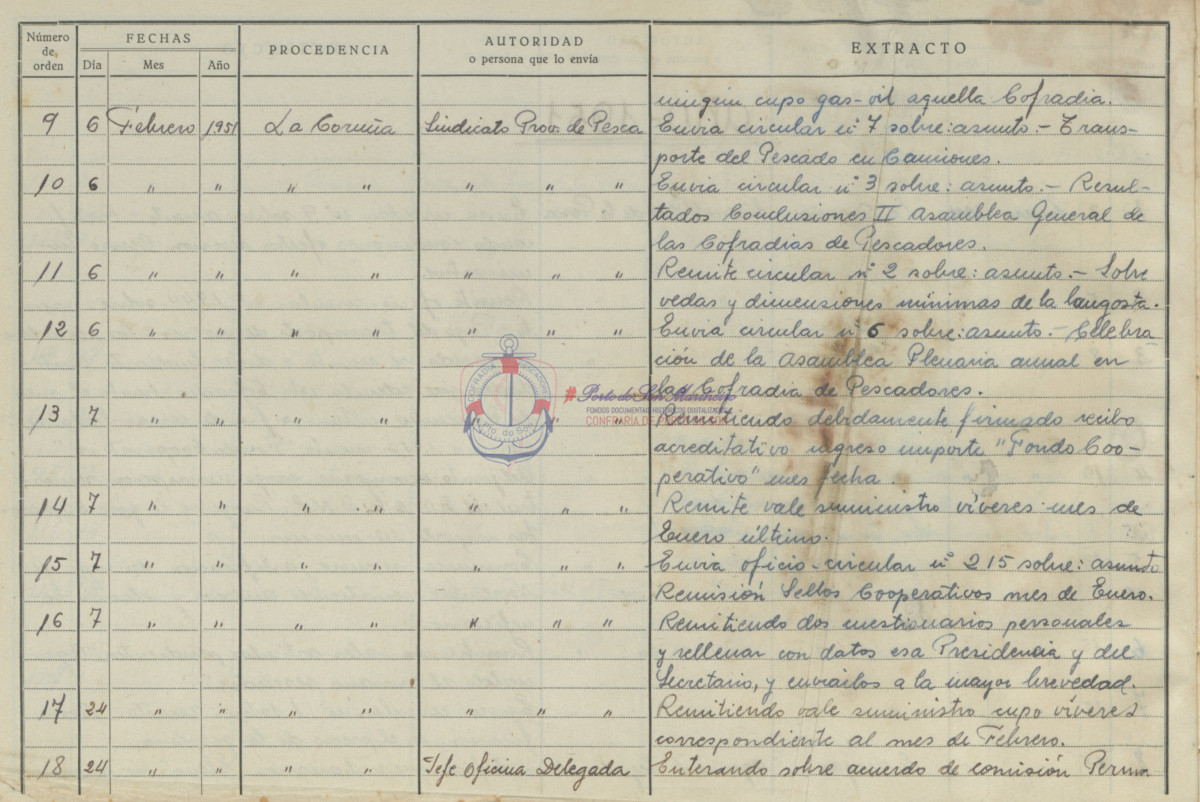 Número de orden FECHAS PROCEDENCIA AUTORIDAD o persona que lo envía EXTRACTO
Día Mes Año
ningún cupo gas-oil aquella Cofradia.
9 6 Febrero 1951 La Coruña Sindicato Prov. de Pesca Envia circular nº 7 sobre: asunto.- Trans-
porte del Pescado en Camiones.
10 6 " " " " " " " Envia circular nº 3 sobre: asunto.- Resul-
tados Conclusiones II Asamblea General de
las Cofradias de Pescadores.
11 6 " " " " " " " Remite circular nº 2 sobre: asunto.- Sobre
vedas y dimensiones mínimas de la langosta.
12 6 " " " " " " " Envia circular nº 6 sobre: asunto.- Celebra-
ción de la Asamblea Plenaria anual en
las Cofradia de Pescadores.
13 7 " " " " " " " Remitiendo debidamente firmado recibo
acreditativo ingreso importe "Fondo Coo-
perativo" mes fecha.
14 7 " " " " " " " Remite vale suministro víveres mes de
Enero último.
15 7 " " " " " " " Envia oficio-circular nº 215 sobre: asunto
Remisión Sellos Cooperativos mes de Enero.
16 7 " " " " " " " Remitiendo dos cuestionarios personales
y rellenar con datos esa Presidencia y del
Secretario, y enviarlos a la mayor brevedad.
17 24 " " " " " " " Remitiendo vale suministro cupo víveres
correspondiente al mes de Febrero.
18 24 " " " " Jefe Oficina Delegada Enterando sobre acuerdo de comisión Perma
Pto. do Son
FONDOS DOCUMENTAIS HISTÓRICOS DIGITALIZADOS